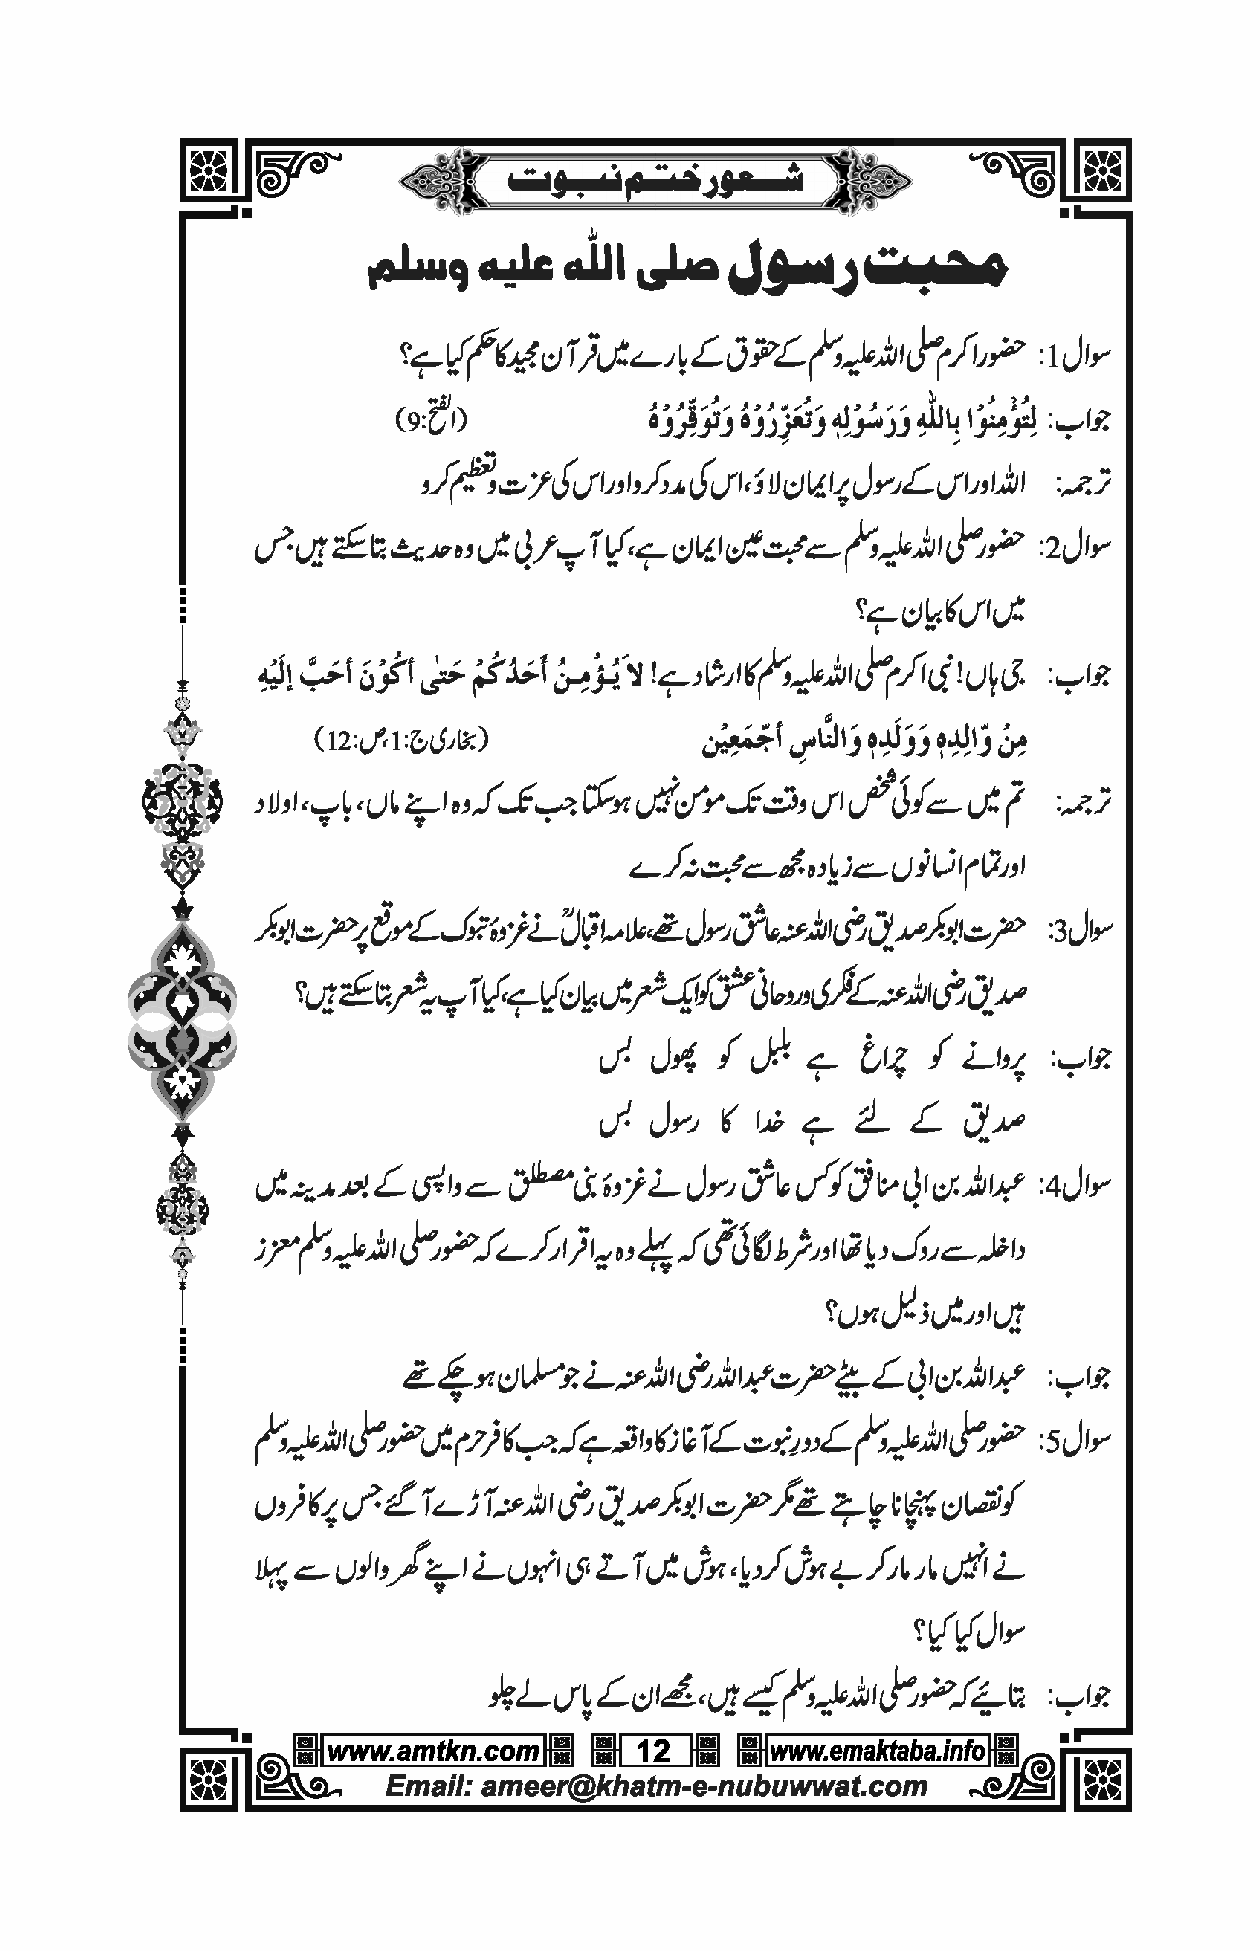 شعور ختم نبوت
محبت رسول صلی اللہ علیہ وسلم
سوال1: حضور اکرم صلی اللہ علیہ وسلم کے حقوق کے بارے میں قرآن مجید کا حکم کیا ہے؟
جواب: لِتُؤْمِنُوْا بِاللّٰہِ وَرَسُوْلِہٖ وَتُعَزِّرُوْہُ وَتُوَقِّرُوْہُ (الفتح:9)
ترجمہ: اللہ اور اس کے رسول پر ایمان لاؤ، اس کی مدد کرو اور اس کی عزت و تعظیم کرو
سوال2: حضور صلی اللہ علیہ وسلم سے محبت عین ایمان ہے، کیا آپ عربی میں وہ حدیث بتا سکتے ہیں جس
میں اس کا بیان ہے؟
جواب: جی ہاں! نبی اکرم صلی اللہ علیہ وسلم کا ارشاد ہے! لَا یُؤْمِنُ أَحَدُکُمْ حَتٰی أَکُوْنَ أَحَبَّ إِلَیْہِ
مِنْ وَّالِدِہٖ وَوَلَدِہٖ وَالنَّاسِ أَجْمَعِیْنَ (بخاری ج:1،ص:12)
ترجمہ: تم میں سے کوئی شخص اس وقت تک مومن نہیں ہوسکتا جب تک کہ وہ اپنے ماں، باپ، اولاد
اور تمام انسانوں سے زیادہ مجھ سے محبت نہ کرے
سوال3: حضرت ابوبکر صدیق رضی اللہ عنہ عاشق رسول تھے، علامہ اقبالؒ نے غزوۂ تبوک کے موقع پر حضرت ابوبکر
صدیق رضی اللہ عنہ کے فکری اور روحانی عشق کو ایک شعر میں بیان کیا ہے، کیا آپ یہ شعر بتا سکتے ہیں؟
جواب: پروانے کو چراغ ہے بلبل کو پھول بس
صدیق کے لئے ہے خدا کا رسول بس
سوال4: عبداللہ بن ابی منافق کو کس عاشق رسول نے غزوۂ بنی مصطلق سے واپسی کے بعد مدینہ میں
داخلہ سے روک دیا تھا اور شرط لگائی تھی کہ پہلے وہ یہ اقرار کرے کہ حضور صلی اللہ علیہ وسلم معزز
ہیں اور میں ذلیل ہوں؟
جواب: عبداللہ بن ابی کے بیٹے حضرت عبداللہ رضی اللہ عنہ نے جو مسلمان ہو چکے تھے
سوال5: حضور صلی اللہ علیہ وسلم کے دورِ نبوت کے آغاز کا واقعہ ہے کہ جب کافر حرم میں حضور صلی اللہ علیہ وسلم
کو نقصان پہنچانا چاہتے تھے مگر حضرت ابوبکر صدیق رضی اللہ عنہ آڑے آگئے جس پر کافروں
نے انہیں مار مار کر بے ہوش کردیا، ہوش میں آتے ہی انہوں نے اپنے گھر والوں سے پہلا
سوال کیا کیا؟
جواب: بتائیے کہ حضور صلی اللہ علیہ وسلم کیسے ہیں، مجھے ان کے پاس لے چلو
www.amtkn.com 12 www.emaktaba.info
Email: ameer@khatm-e-nubuwwat.com